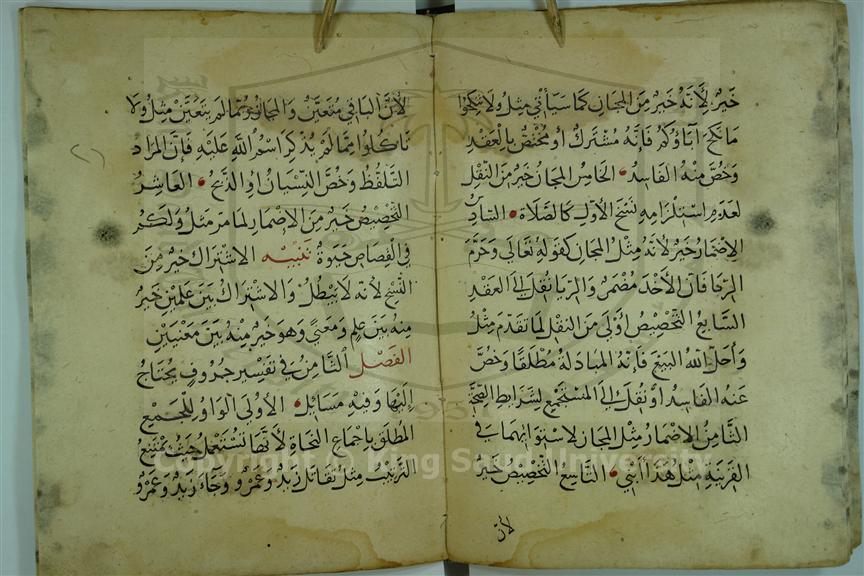 خير لأنه خير من المجاز كما سيأتي مثل ولا تنكحوا
ما نكح آباؤكم فإنه مشترك أو مختص بالعقد
وخص منه الفاسد الخامس المجاز خير من النقل
لعدم استلزامه نسخ الأول كالصلاة السادس
الإضمار خير لأنه مثل المجاز كقوله تعالى وحرم
الربا فإن الأخذ مضمر والربا نقل إلى العقد
السابع التخصيص أولى من النقل لما تقدم مثل
وأحل الله البيع فإنه المبادلة مطلقا وخص
عنه الفاسد أو نقل إلى المستجمع لشرايط الصحة
الثامن الإضمار مثل المجاز لاستوائهما في
القرينة مثل هذا ابني التاسع التخصيص خير
لأن
لأن الباقي متعين والمجاز ربما لم يتعين مثل ولا
تأكلوا مما لم يذكر اسم الله عليه فإن المراد
التلفظ وخص النسيان أو الذبح العاشر
التخصيص خير من الإضمار لما مر مثل ولكم
في القصاص حيوة تنبيه الاشتراك خير من
النسخ لأنه لا يبطل والاشتراك بين علمين خير
منه بين علم ومعنى وهو خير منه بين معنيين
الفصل الثامن في تفسير حروف يحتاج
إليها وفيه مسايل الأولى الواو للجميع
المطلق بإجماع النحاة لأنها تستعمل حيث يمتنع
الترتيب مثل تقاتل زيد وعمرو وجاء زيد وعمرو
Copyright © King Saud University